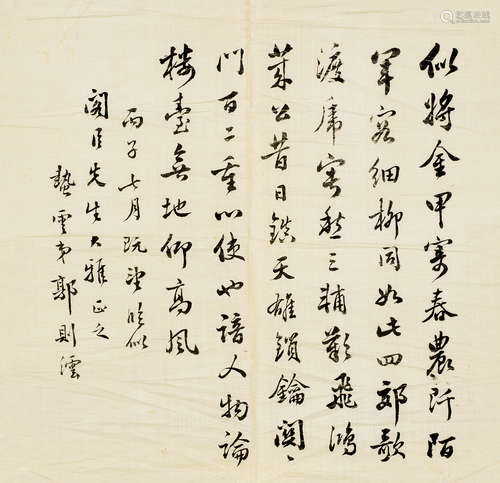 似將金甲寄春農阡陌
軍容細柳同如此四郊歌
渡虎寧愁三輔歎飛鴻
萊公昔日鎮天雄鎖鑰關
門百二重北使也諳人物論
樓臺無地仰高風
丙子七月既望似
先生大雅正之
蟄雲弟郭則澐